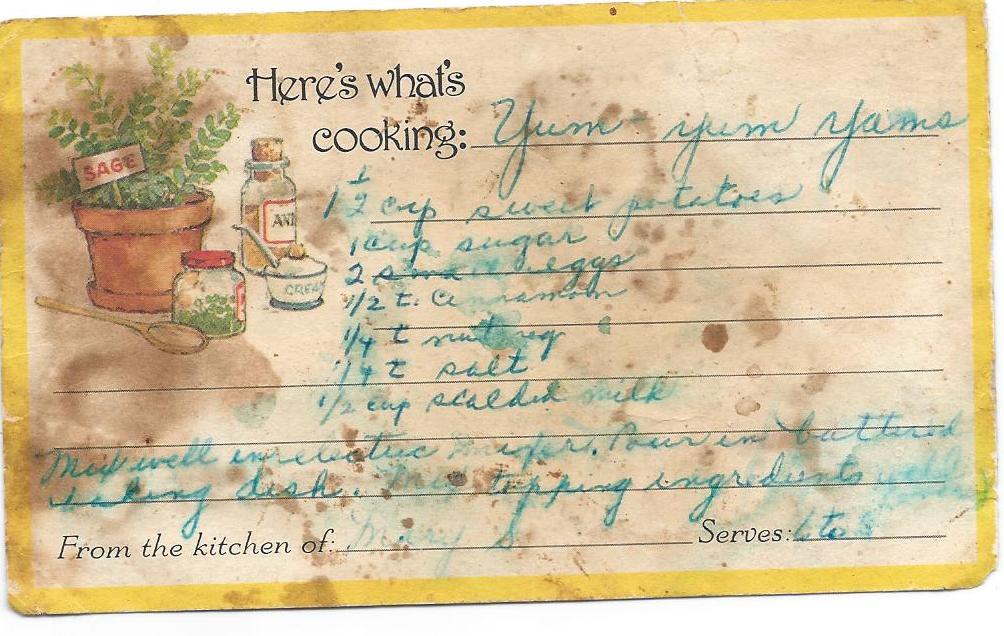 Here's what's
cooking: Yum-yum Yams
SAGE
1 1/2 cup sweet potatoes
1 cup sugar
2 eggs
1/2 t. Cinnamon
1/4 t nutmeg
1/4 t salt
1/2 cup scalded milk
Mix well in electric mixer. Pour in buttered
baking dish. Mix topping ingredients well
From the kitchen of: Mary S Serves: 6 to 8